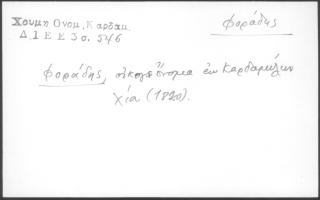 Χουμη Ονομ. Καρδαμ.
Δ Ι Ε Ε 3 σ. 546
Φοράδης
Φοράδης, οικογ. όνομα εν Καρδαμύλων
Χία (1820).